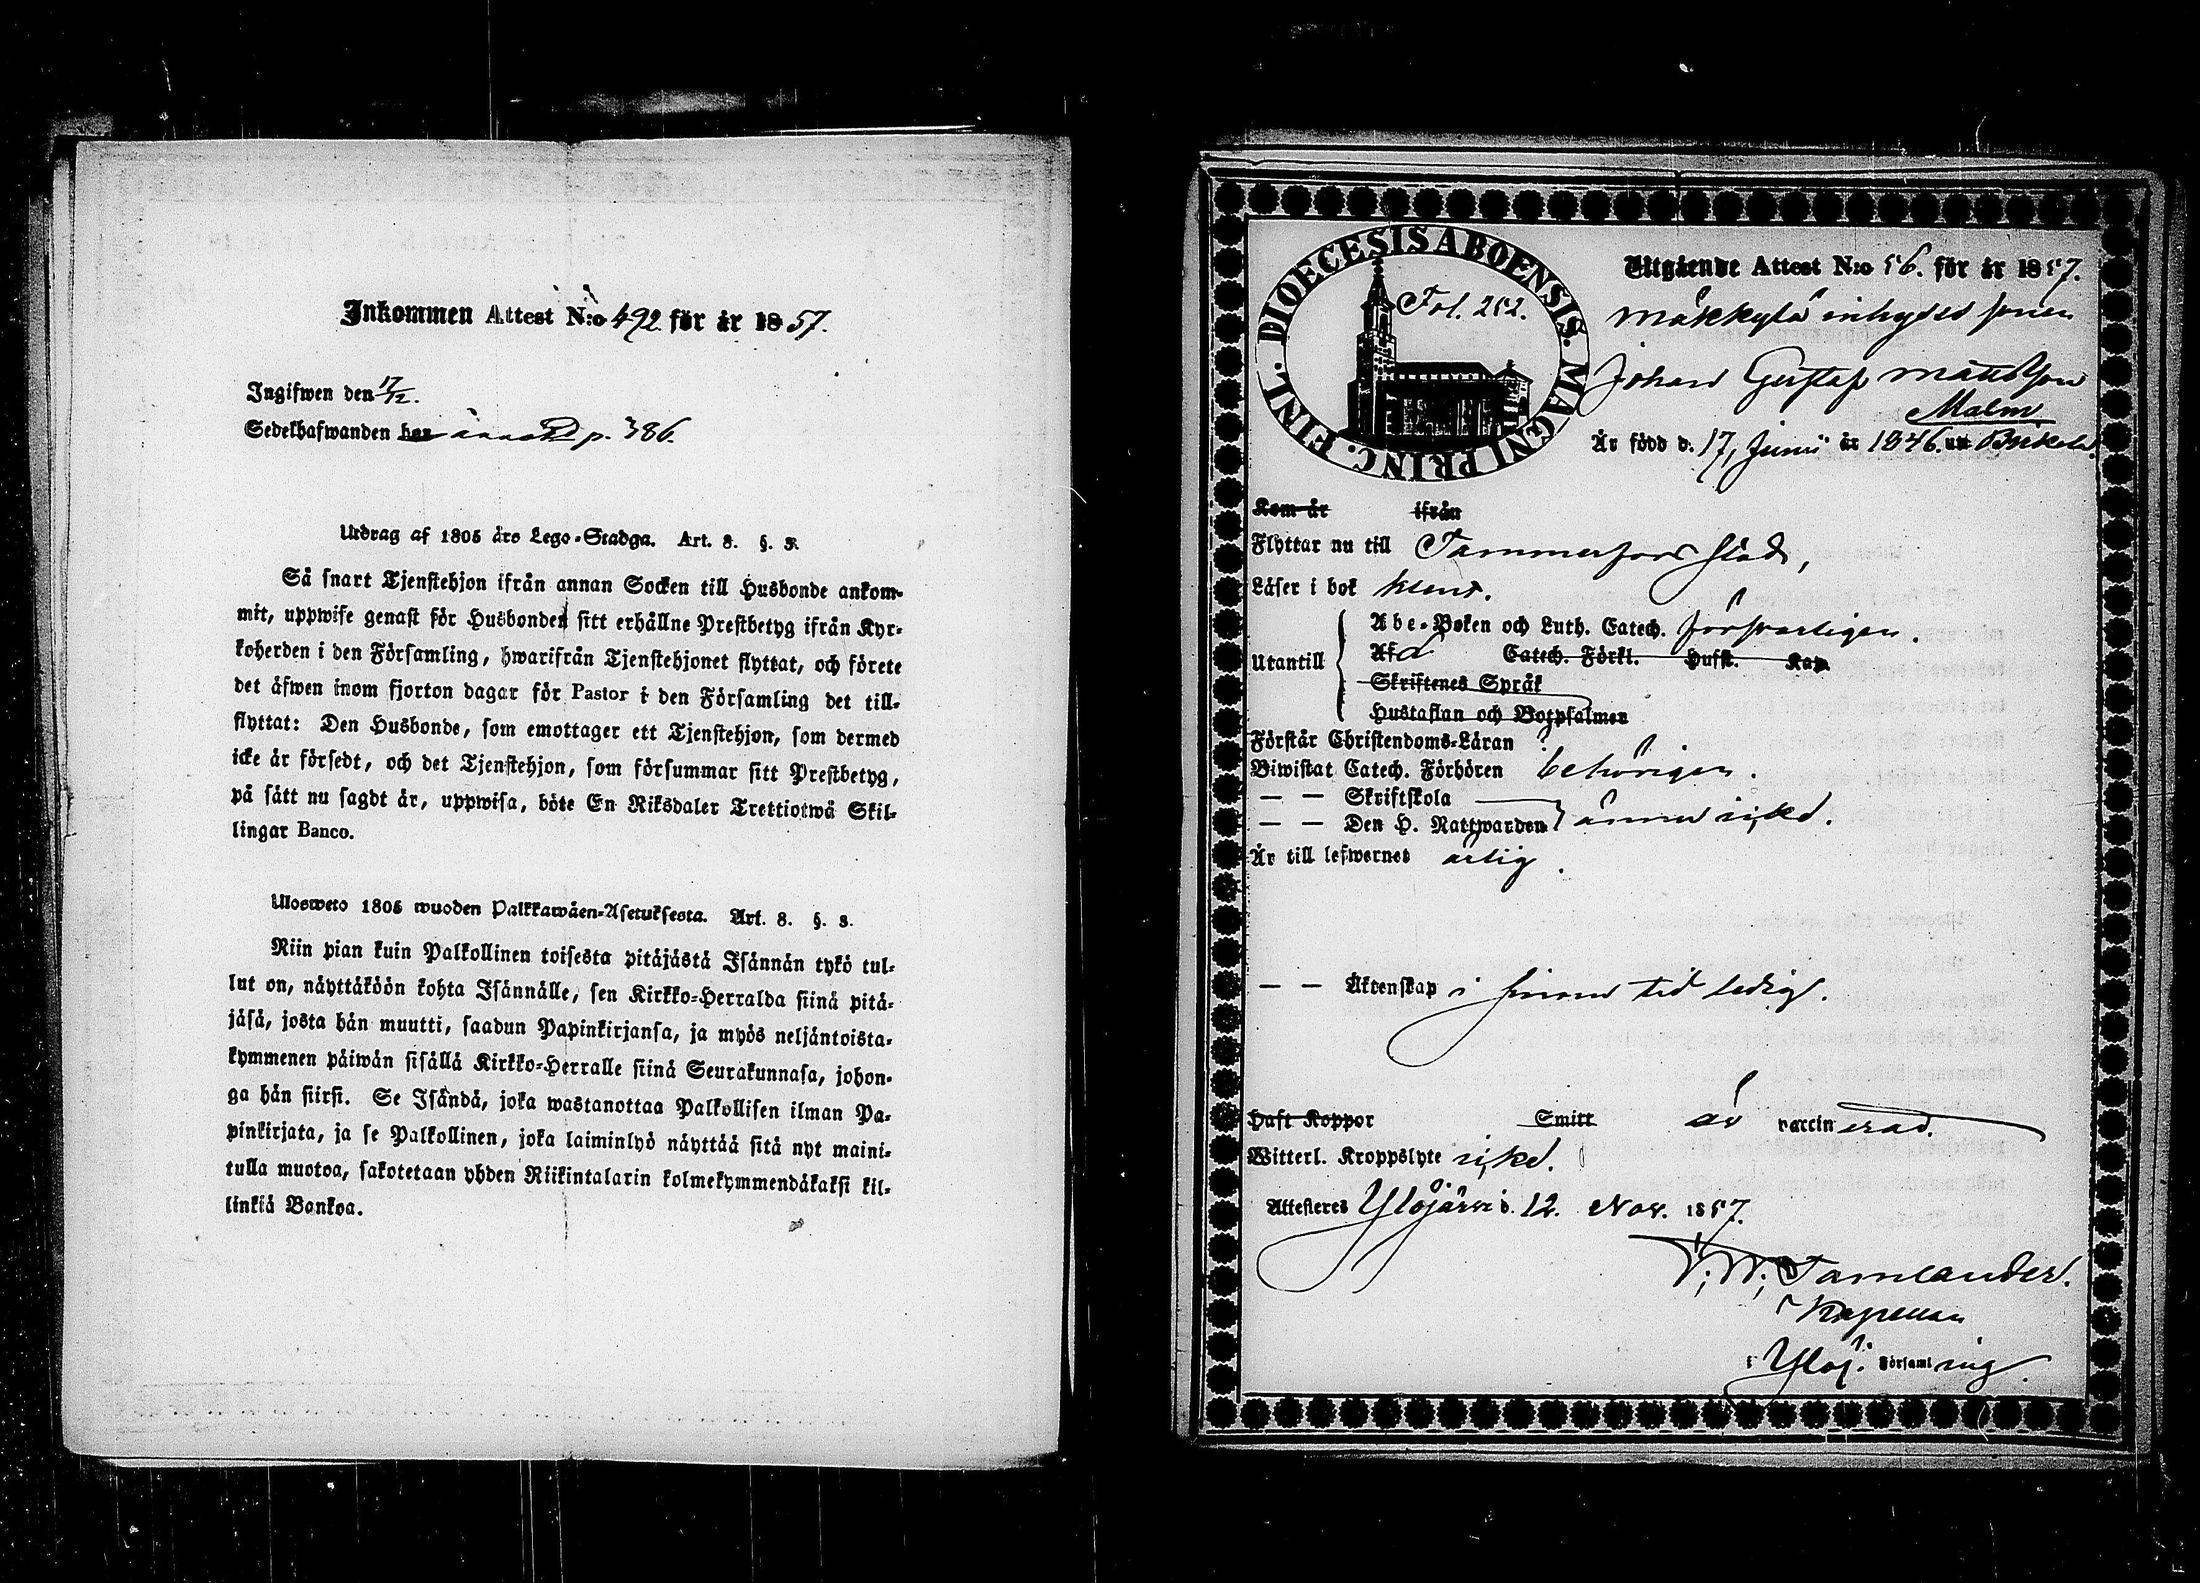 Inkommen Attest N:o 492 för år 1857.
Ingifwen den 17/12.
Sedelhafwanden har p. 386.
Utdrag af 1805 års Lego-Stadga. Art. 8. §. 3.
Så snart Tjenstehjon ifrån annan Socken till Husbonde ankom-
mit, uppwise genast för Husbonden sitt erhållne Prestbetyg ifrån Kyr-
koherden i den Församling, hwarifrån Tjenstehjonet flyttat, och förete
det äfwen inom fjorton dagar för Pastor i den Församling det till-
flyttat: Den Husbonde, som emottager ett Tjenstehjon, som dermed
icke är försedt, och det Tjenstehjon, som försummar sitt Prestbetyg,
på sätt nu sagdt är, uppwisa, böte En Riksdaler Trettiotwå Skil-
lingar Banco.
Uloswеto 1805 wuoden Palkkawäen-Asetuksesta. Art. 8. §. 3.
Niin pian kuin Palkollinen toisesta pitäjästä Isännän tykö tul-
lut on, näyttäköön kohta Isännälle, sen Kirkko-Herralda siinä pitä-
jäsä, josta hän muutti, saadun Papinkirjansa, ja myös neljäntoista-
kymmenen päiwän sisällä Kirkko-Herralle siinä Seurakunnasa, johon-
ga hän siirsi. Se Isändä, joka wastanottaa Palkollisen ilman Pa-
pinkirjata, ja se Palkollinen, joka laiminlyö näyttää sitä nyt maini-
tulla muotoa, sakotetaan yhden Riikintalarin kolmekymmendäkaksi kil-
linkiä Bankoa.
DIOECESIS ABOENSIS. MAGNI PRINC. FINL.
Fol. 252.
Utgående Attest N:o 56. för år 1857.
Mäkkylä inhyses sonen
Johan Gustaf Mattsson
Malm
Är född d. 17, Junii år 1846. uti Birkala.
Kom år ifrån
Flyttar nu till Tammerfors stad,
Läser i bok klent.
Utantill
Abc-Boken och Luth. Catech. försvarligen.
Afd Catech. Förkl. Hufst. Kap.
Skriftenes Språk
Hustaflan och Botpsalmen
Förstår Christendoms-Läran
Biwistat Catech. Förhören behörigen.
— — Skriftskola
— — Den H. Nattwarden ännu icke.
Är till lefwernet ärlig.
— — Äktenskap i sinom tid ledig.
Haft Koppor Smitt är vaccinerad.
Witterl. Kroppslyte icke.
Attesteres Ylöjärvi d. 12. Nov. 1857.
V. W. Tamlander.
Kapellan
i Ylöj. Församling.